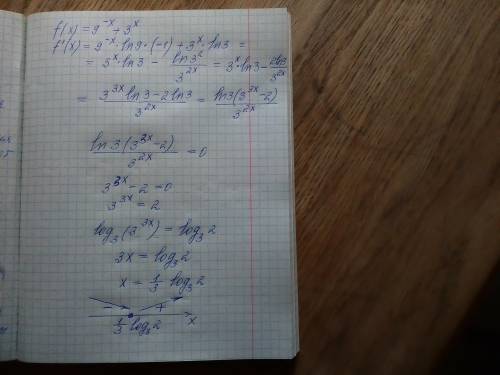 f(x) = 9^{-x} + 3^x
f'(x) = 9^{-x} · ln9 · (-1) + 3^x · ln3 =
= 3^x · ln3 - \frac{ln3^2}{3^{2x}} = 3^x · ln3 - \frac{2ln3}{3^{2x}}
= \frac{3^{3x} ln3 - 2 ln3}{3^{2x}} = \frac{ln3(3^{3x} - 2)}{3^{2x}}
\frac{ln3(3^{3x} - 2)}{3^{2x}} = 0
3^{3x} - 2 = 0
3^{3x} = 2
log_3(3^{3x}) = log_3 2
3x = log_3 2
x = \frac{1}{3} log_3 2
- +
\frac{1}{3} log_3 2 x